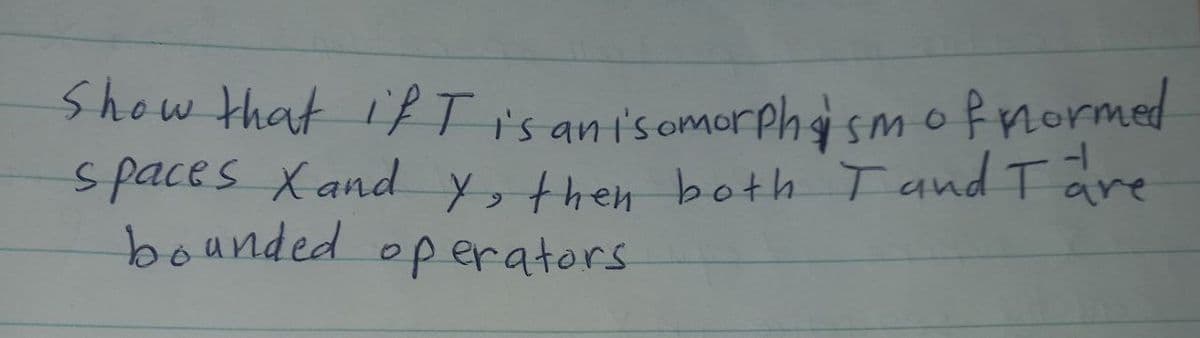 Show that if T is an isomorphism of normed
spaces X and Y, then both T and T⁻¹ are
bounded operators